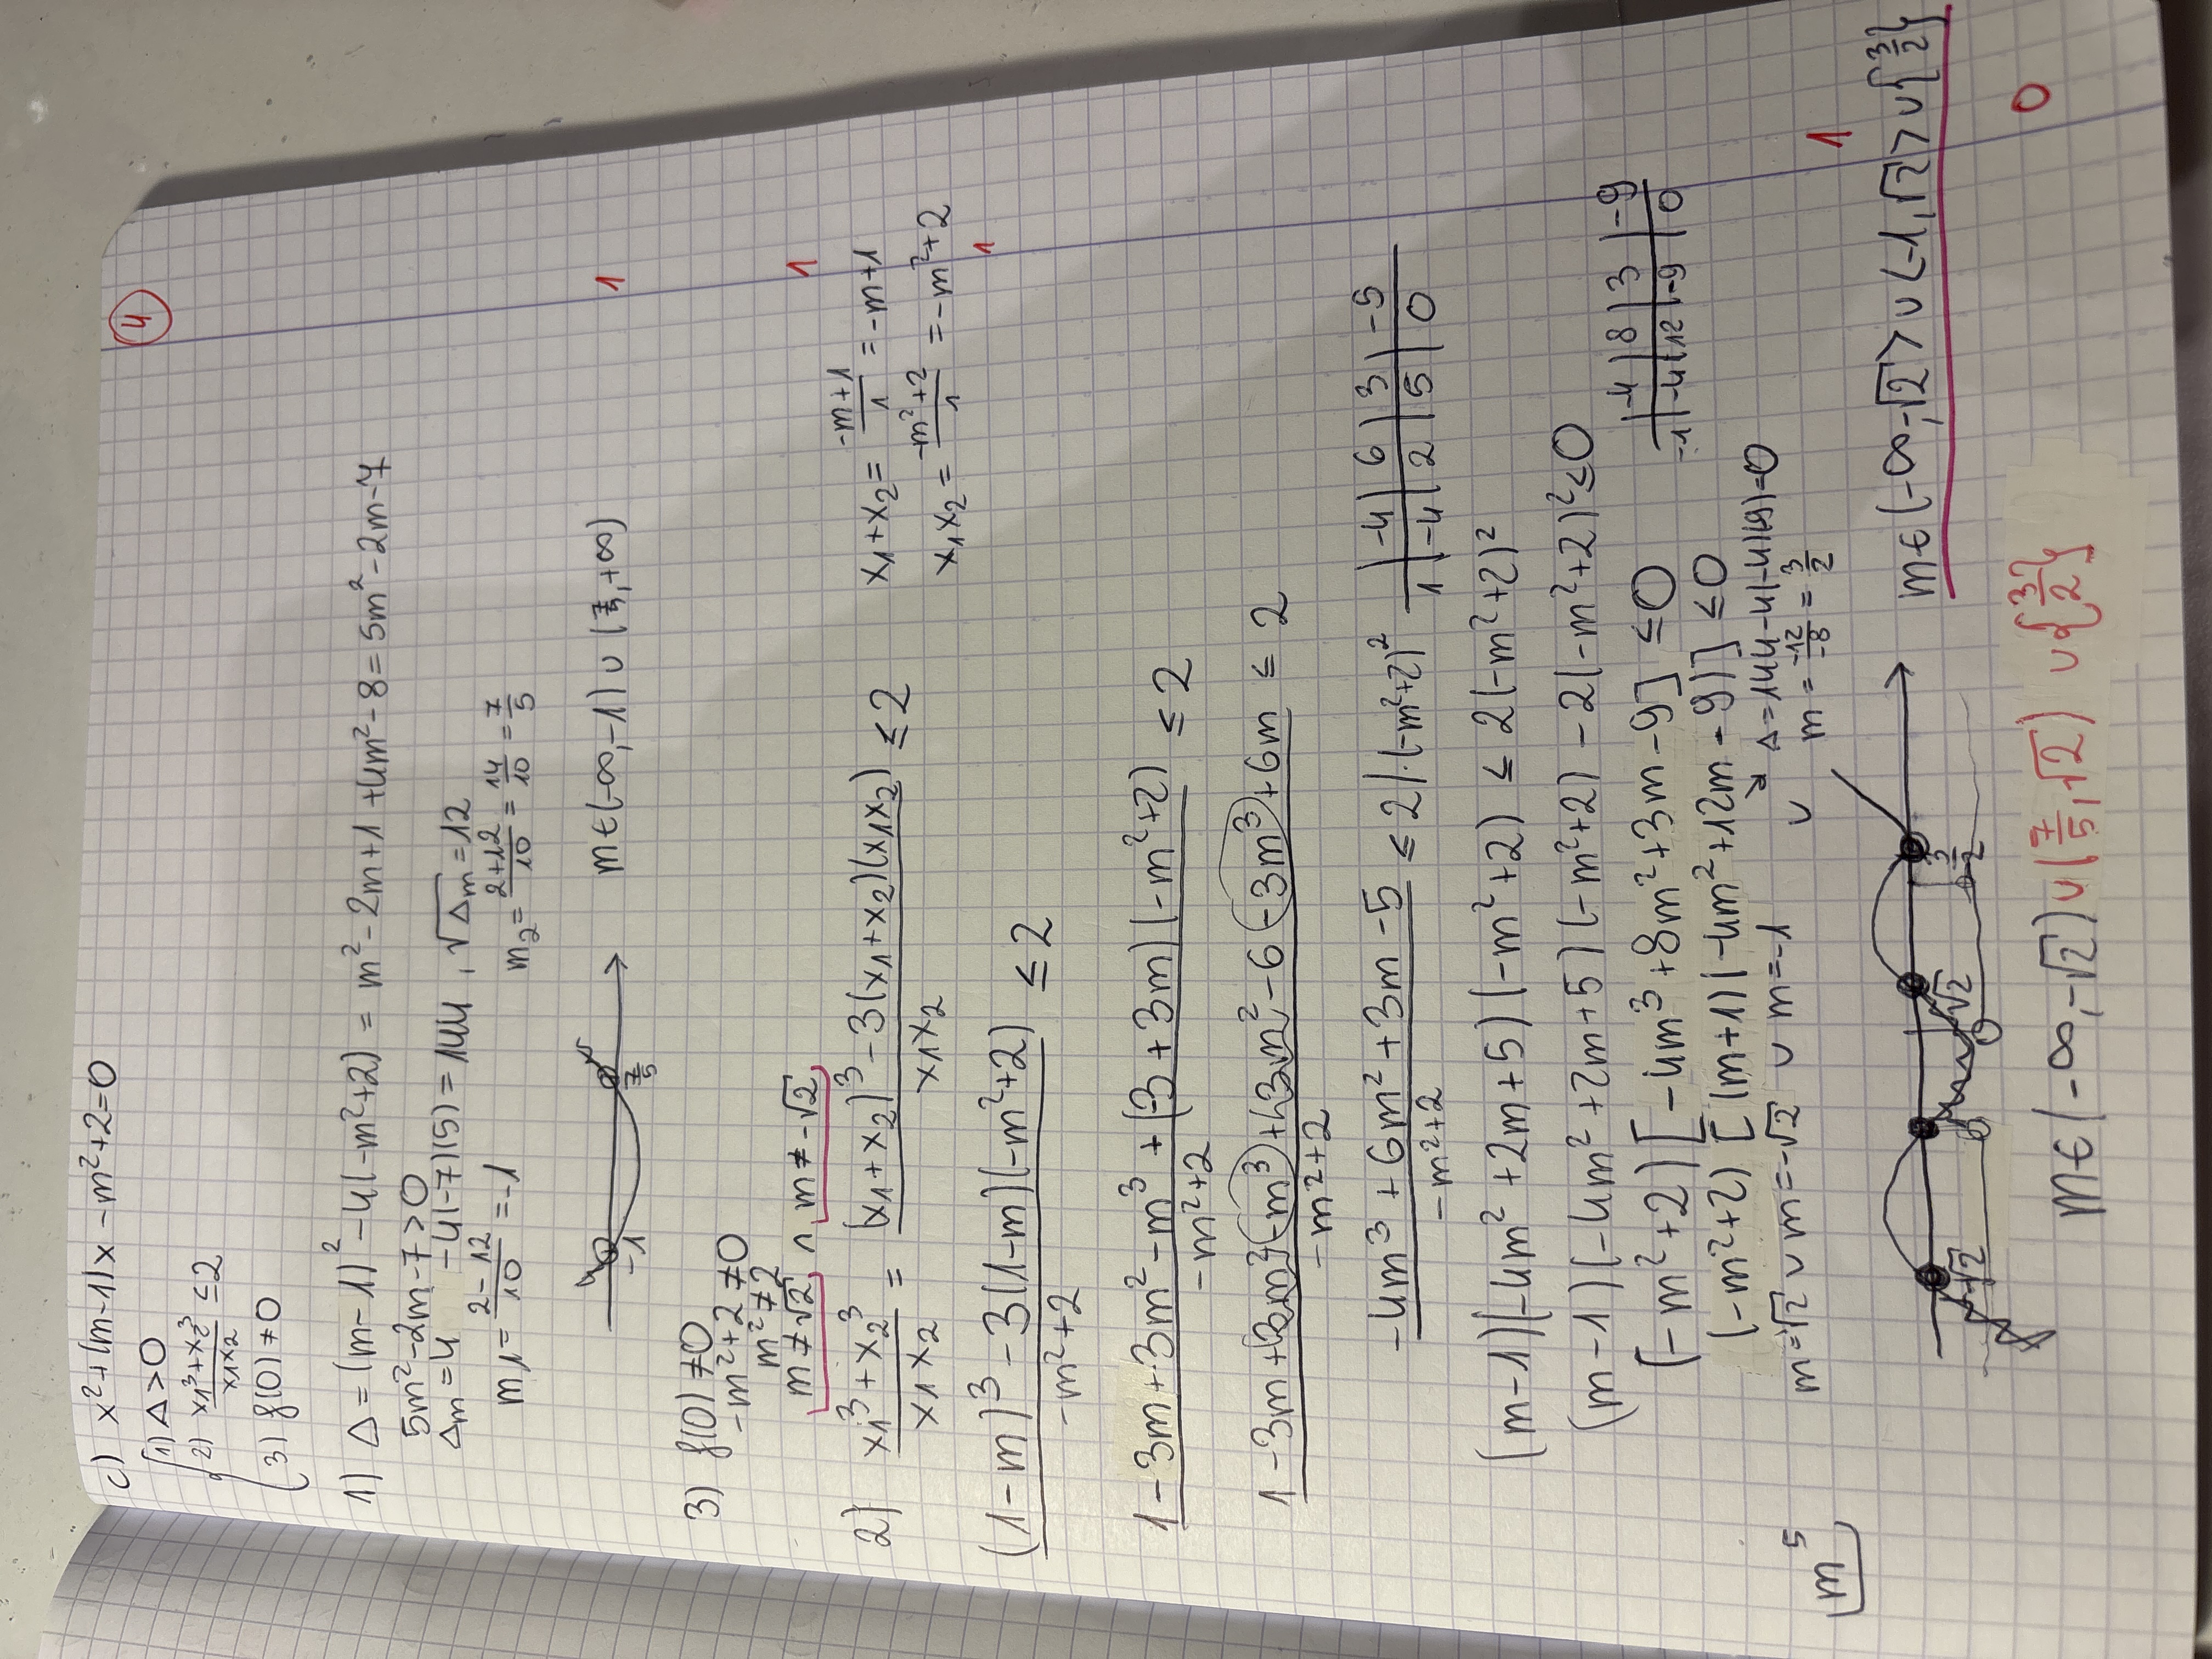 4
c) x²+(m-1)x-m²+2=0
1) Δ>0
2) x₁³+x₂³/x₁x₂ ≤2
3) f(0)≠0
1) Δ=(m-1)²-4(-m²+2)=m²-2m+1+4m²-8=5m²-2m-7
5m²-2m-7>0
Δm=4 -4(-7)(5)=144, √Δm=12
m₁=2-12/10=-1 m₂=2+12/10=14/10=7/5
-1 7/5 m∈(-∞,-1)∪(7/5,+∞) 1
3) f(0)≠0
-m²+2≠0
m²≠2
m≠√2 ∧ m≠-√2 1
2) x₁³+x₂³/x₁x₂ = (x₁+x₂)³-3(x₁+x₂)(x₁x₂)/x₁x₂ ≤2 x₁+x₂=-m+1/1=-m+1
x₁x₂=-m²+2/1=-m²+2
(1-m)³-3(1-m)(-m²+2)/-m²+2 ≤2 1
1-3m+3m²-m³+(-3+3m)(-m²+2)/-m²+2 ≤2
1-3m+(3m²)(-m³)+(3m²-6(-3m³)+6m/-m²+2 ≤2
-4m³+6m²+3m-5/-m²+2 ≤2 |·(-m²+2)² | -4 | 6 | 3 | -5
1 | -4 | 2 | 5 | 0
(m-1)(-4m²+2m+5)(-m²+2) ≤ 2(-m²+2)²
(m-1)(-4m²+2m+5)(-m²+2)-2(-m²+2)²≤0
(-m²+2)[-4m³+8m²+3m-9]≤0 | -4 | 8 | 3 | -9
-1 | -4 | 12 | -9 | 0
(-m²+2)[(m+1)(-4m²+12m-9)]≤0
Δ=144-4(-4)(-9)=0
m=√2 ∪ m=-√2 ∪ m=-1 ∪ m=-12/-8=3/2 1
m⁵
-√2 √2 3/2 m∈(-∞,-√2> ∪ <-1,√2> ∪ {3/2}
0
m∈(-∞,-√2)∪(7/5,√2) ∪{3/2}